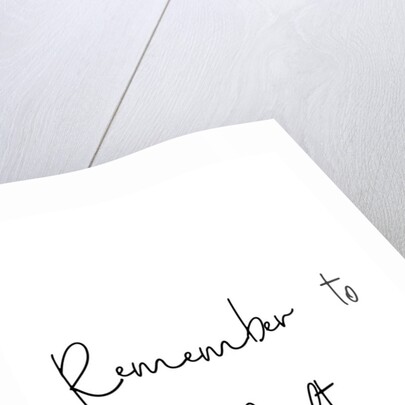 Remember to